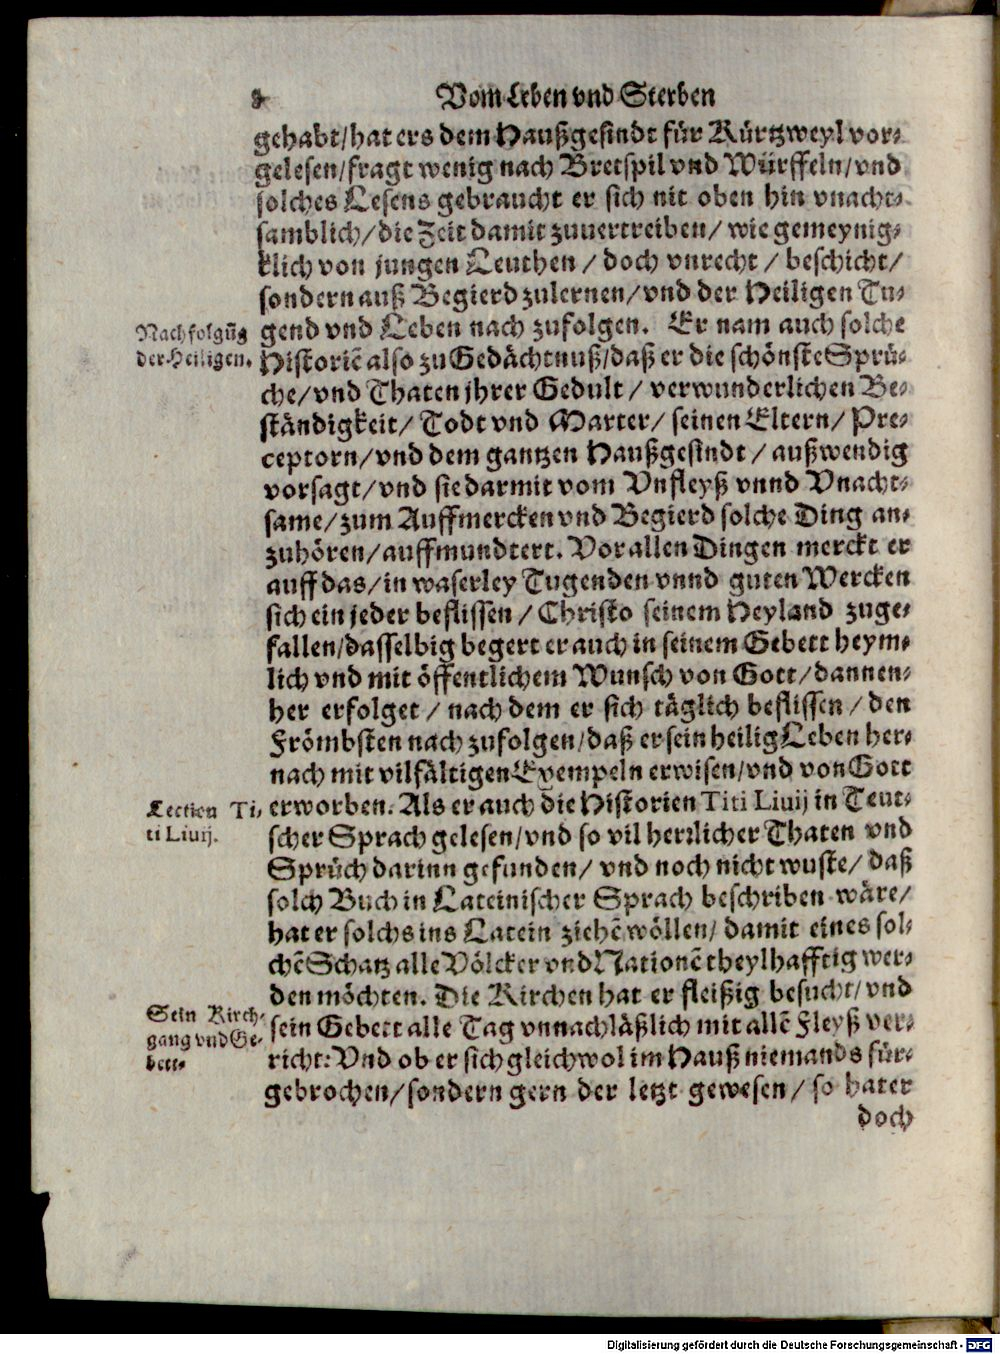 8 Vom Leben vnd Sterben
gehabt/hat ers dem Haußgesindt für Kürtzweyl vor-
gelesen/fragt wenig nach Bretspil vnd Würffeln/vnd
solches Lesens gebraucht er sich nit oben hin vnacht-
samblich/die Zeit damit zuuertreiben/wie gemeynig-
klich von jungen Leuthen/doch vnrecht/beschicht/
sondern auß Begierd zulernen/vnd der Heiligen Tu-
Nachfolgūg
der Heiligen.
gend vnd Leben nach zufolgen. Er nam auch solche
Historiē also zu Gedächtnuß/daß er die schönste Sprü-
che/vnd Thaten jhrer Gedult/verwunderlichen Be-
ständigkeit/Todt vnd Marter/seinen Eltern/Pre-
ceptorn/vnd dem gantzen Haußgesindt/außwendig
vorsagt/vnd sie darmit vom Vnfleyß vnnd Vnacht-
same/zum Auffmercken vnd Begierd solche Ding an-
zuhören/auffmundtert. Vor allen Dingen merckt er
auff das/in waserley Tugenden vnnd guten Wercken
sich ein jeder beflissen/Christo seinem Heyland zuge-
fallen/dasselbig begert er auch in seinem Gebett heym-
lich vnd mit öffentlichem Wunsch von Gott/dannen-
her erfolget/nach dem er sich täglich beflissen/den
Frömbsten nach zufolgen/daß er sein heilig Leben her-
nach mit vilfältigen Exempeln erwisen/vnd von Gott
Lection Ti-
ti Liuij.
erworben. Als er auch die Historien Titi Liuij in Teut-
scher Sprach gelesen/vnd so vil herrlicher Thaten vnd
Sprüch darinn gefunden/vnd noch nicht wuste/daß
solch Buch in Lateinischer Sprach beschriben wäre/
hat er solchs ins Latein ziehē wöllen/damit eines sol-
chē Schatz alle Völcker vnd Nationē theylhafftig wer-
den möchten. Die Kirchen hat er fleißig besucht/vnd
Sein Kirch-
gang vnd Ge-
bett.
sein Gebett alle Tag vnnachläßlich mit allē Fleyß ver-
richt: Vnd ob er sich gleichwol im Hauß niemands für-
gebrochen/sondern gern der letzt gewesen/so hat er
doch
Digitalisierung gefördert durch die Deutsche Forschungsgemeinschaft - DFG